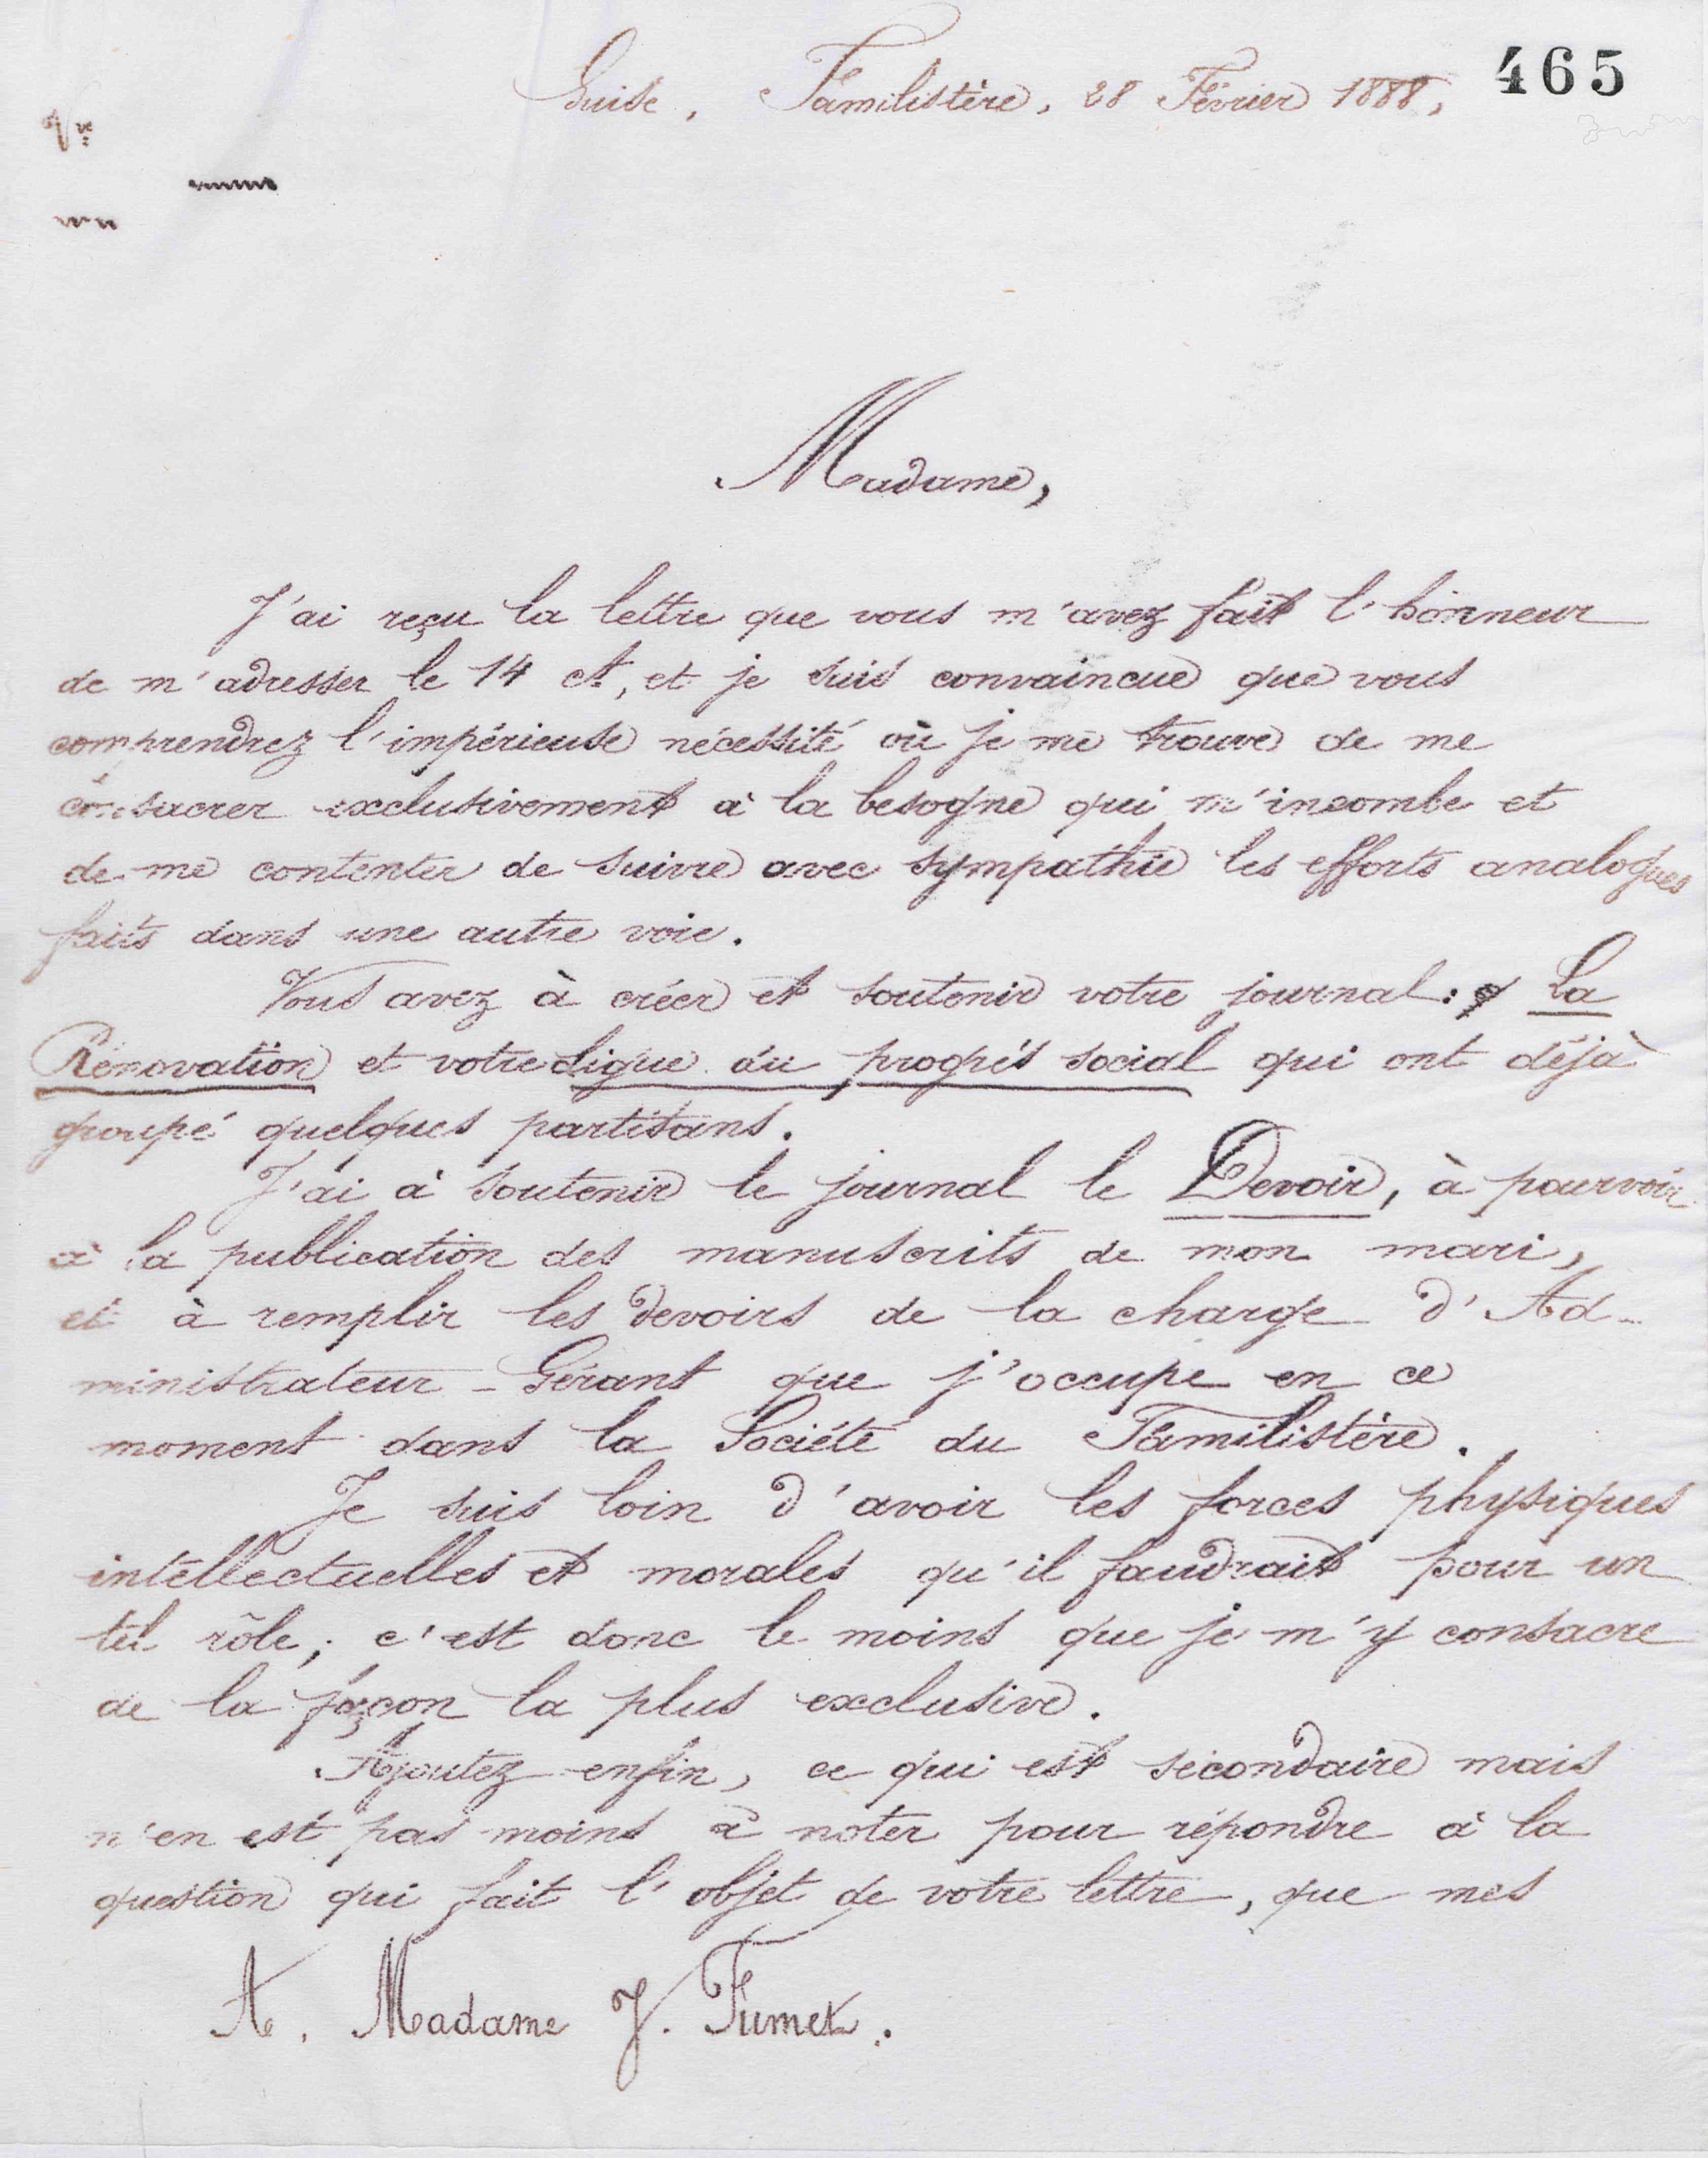 465
Guise, Familistère, 28 Février 1888,
Madame,
J'ai reçu la lettre que vous m'avez fait l'honneur
de m'adresser le 14 ct, et je suis convaincue que vous
comprendrez l'impérieuse nécessité où je me trouve de me
consacrer exclusivement à la besogne qui m'incombe et
de me contenter de suivre avec sympathie les efforts analogues
faits dans une autre voie.
Vous avez à créer et soutenir votre journal : La
Rénovation et votre Ligue du progrès social qui ont déjà
groupé quelques partisans.
J'ai à soutenir le journal le Devoir, à pourvoir
à la publication des manuscrits de mon mari,
et à remplir les devoirs de la charge d'Ad-
ministrateur-Gérant que j'occupe en ce
moment dans la Société du Familistère.
Je suis loin d'avoir les forces physiques
intellectuelles et morales qu'il faudrait pour un
tel rôle ; c'est donc le moins que je m'y consacre
de la façon la plus exclusive.
Ajoutez enfin, ce qui est secondaire mais
n'en est pas moins à noter pour répondre à la
question qui fait l'objet de votre lettre, que mes
A. Madame J. Fumet.